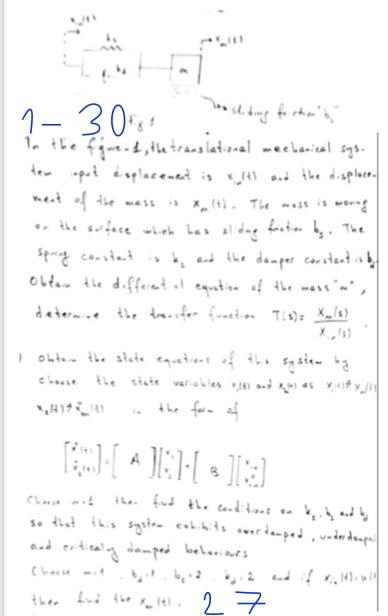 x_in(t)
k_s
x_m(t)
b_d
m
sliding friction "b_s"
1-30 Fig 1
In the figure-1, the translational mechanical sys-
tem input displacement is x_in(t) and the displace-
ment of the mass is x_m(t). The mass is moving
on the surface which has sliding friction b_s. The
spring constant is k_s and the damper constant is b_d
Obtain the differential equation of the mass "m",
determine the transfer function T(s)= X_m(s)
X_in(s)
) Obtain the state equations of this system by
choose the state variables x_1(t) and x_2(t) as
in the form of
[ẋ_1(t) ẋ_2(t)]=[ A ][x_1 x_2]+[ B ][x_in ẋ_in]
Choose m=1 then find the conditions on k_s, b_s and b_d
so that this system exhibits overdamped, underdamped
and critically damped behaviours
Choose m=1, b_s=2 and if
then find the x_m(t). 27